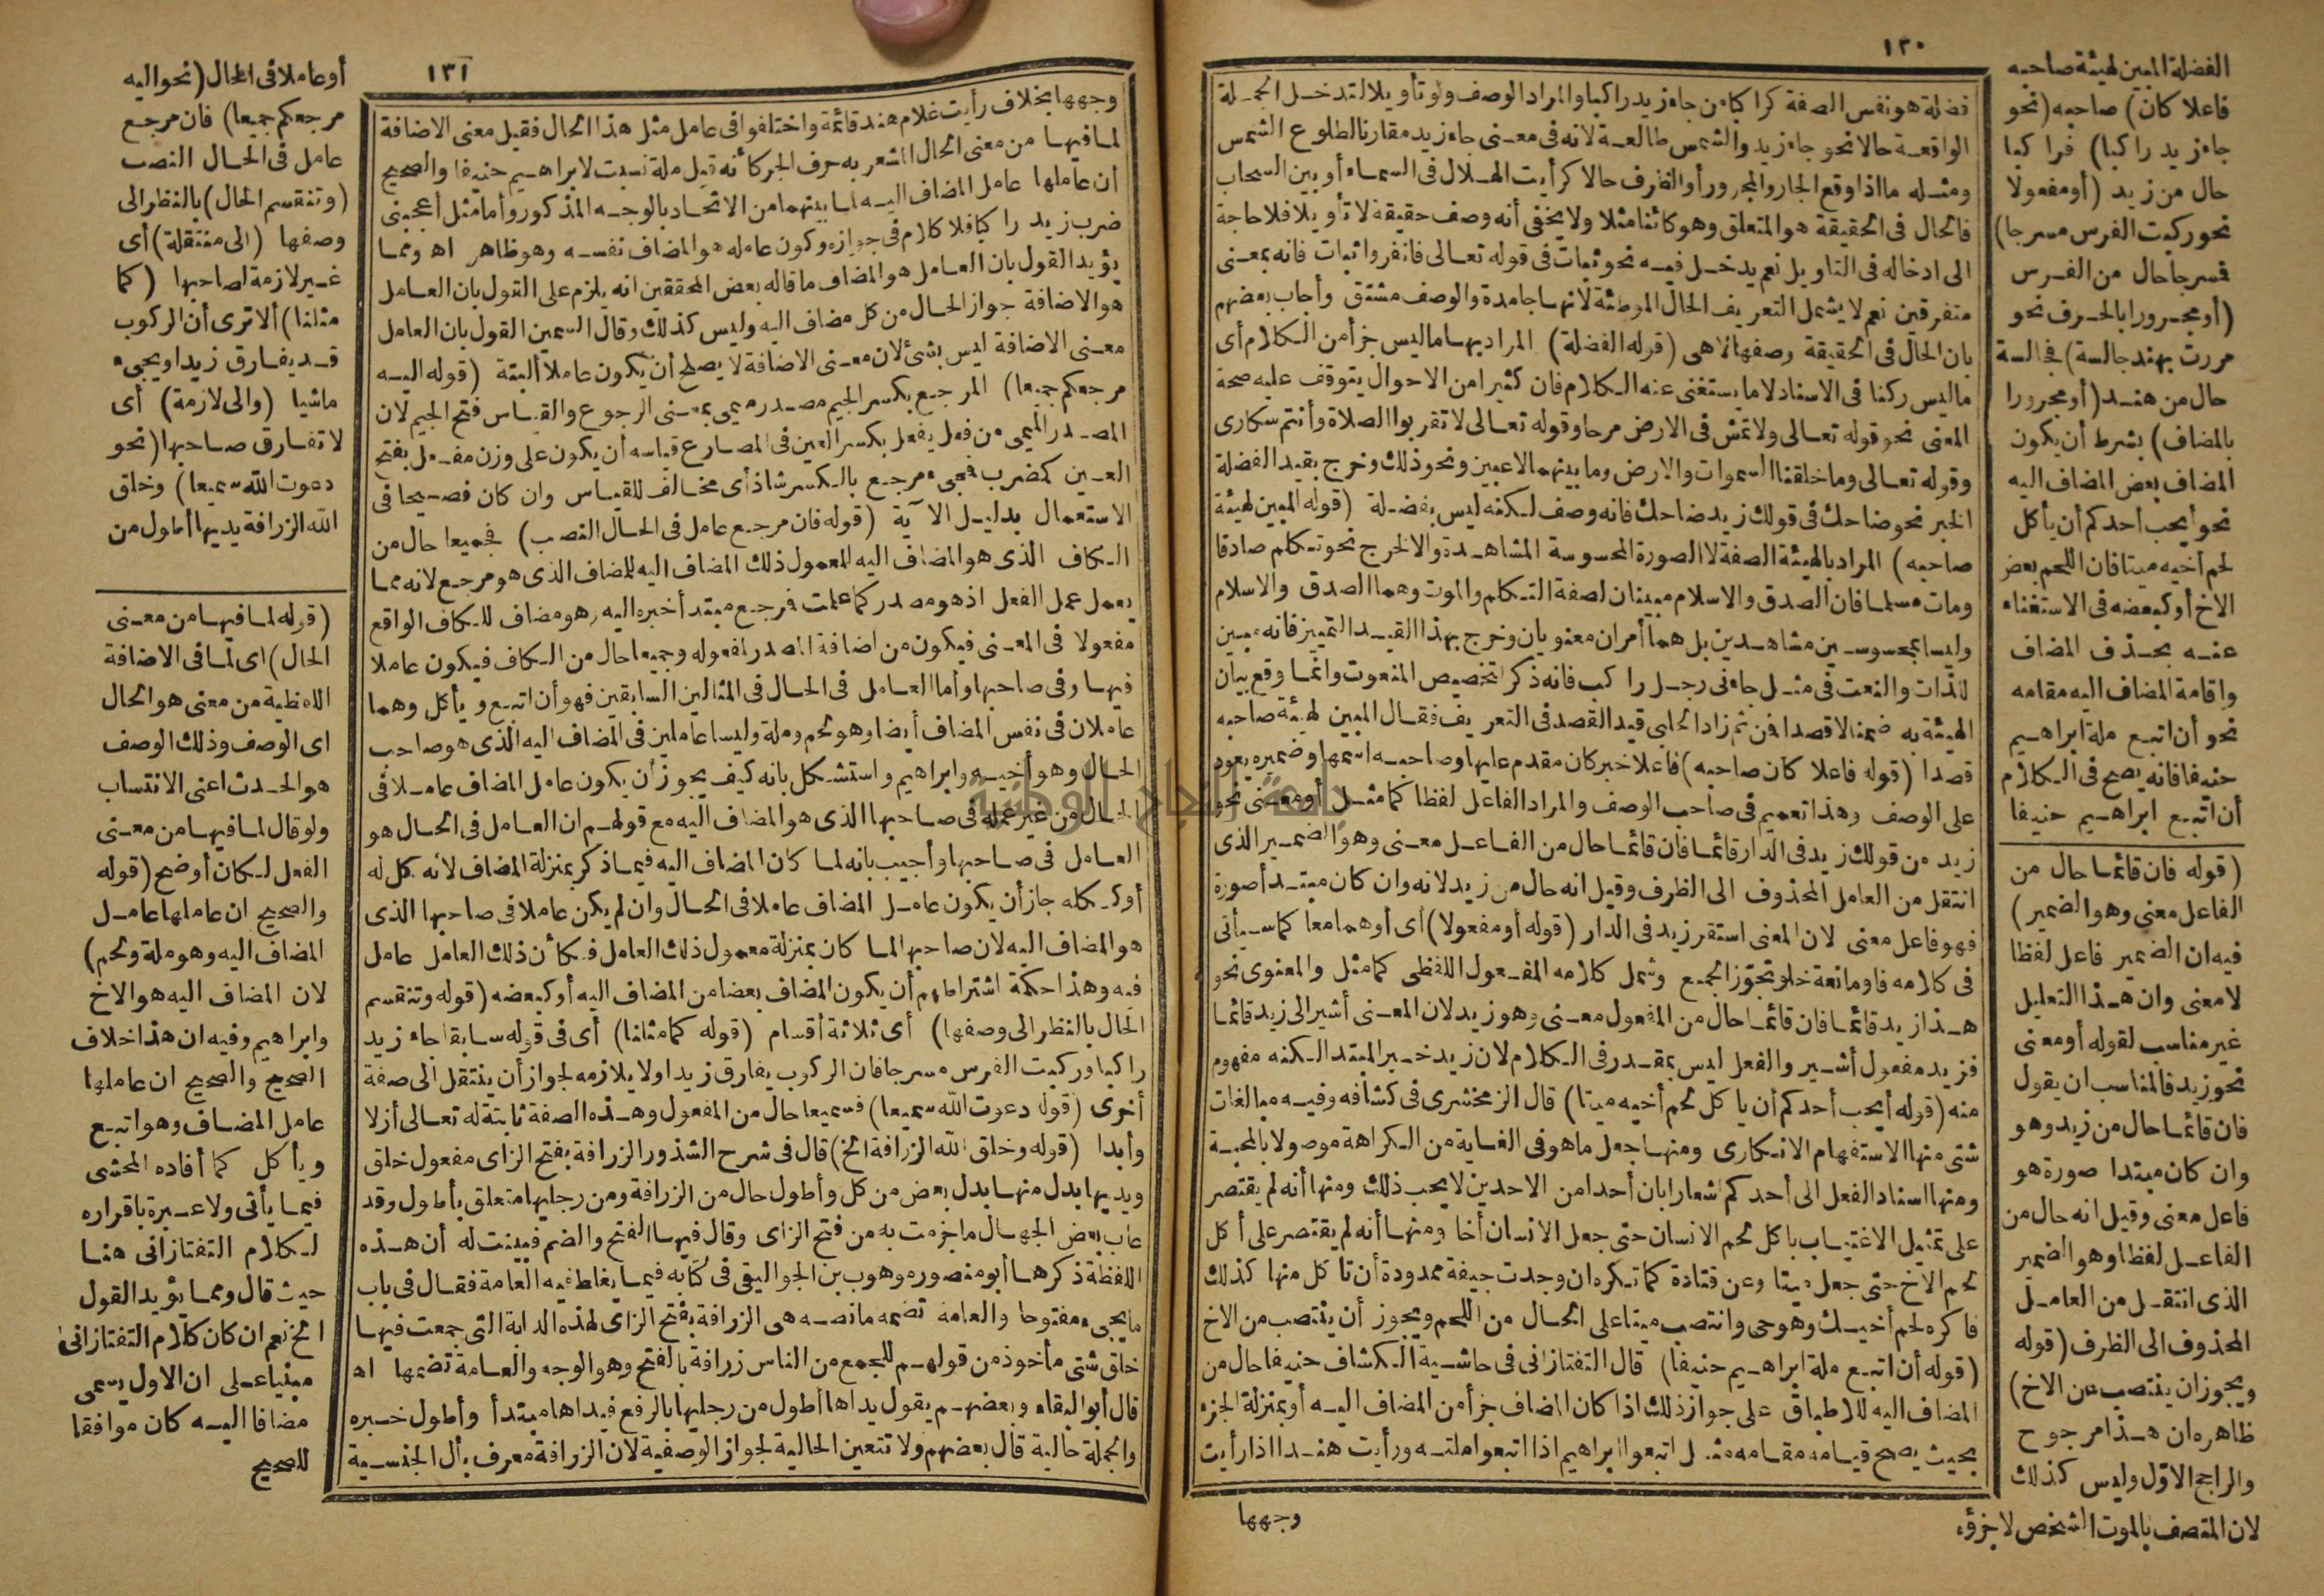 ١٣٠
الفضلة المبين لهيئة صاحبه
فاعلا كان) صاحبه (نحو
جاء زيد راكبا) فراكبا
حال من زيد (أو مفعولا
نحو ركبت الفرس مسرجا)
فسرجا حال من الفرس
(أو مجرورا بالحرف نحو
مررت بهند جالسة) فجالسة
حال من هند (أو مجرورا
بالمضاف) بشرط أن يكون
المضاف بعض المضاف اليه
نحو أيحب أحدكم أن يأكل
لحم أخيه ميتا فان اللحم بعض
الاخ أو كبعضه فى الاستغناء
عنه بحذف المضاف
واقامة المضاف اليه مقامه
نحو أن اتبع ملة ابراهيم
حنيفا فانه يصح فى الكلام
أن اتبع ابراهيم حنيفا
(قوله فان قائما حال من
الفاعل معنى وهو الضمير)
فيه ان الضمير فاعل لفظا
لا معنى وان هذا التعليل
غير مناسب لقوله أو معنى
نحو زيد فالمناسب ان يقول
فان قائما حال من زيد وهو
وان كان مبتدا صورة هو
فاعل معنى وقيل انه حال من
الفاعل لفظا وهو الضمير
الذى انتقل من العامل
المحذوف الى الظرف (قوله
ويجوز ان ينتصب من الاخ)
ظاهره ان هذا مرجوح
والراجح الاول وليس كذلك
لان المتصف بالموت الشخص لا جزؤه
فضلة هو نفس الصفة كراكبا من جاء زيد راكبا والمراد الوصف ولو تأويلا لتدخل الجملة
الواقعة حالا نحو جاء زيد والشمس طالعة لانه فى معنى جاء زيد مقارنا لطلوع الشمس
ومثله ما اذا وقع الجار والمجرور أو الظرف حالا كرأيت الهلال فى السماء أو بين السحاب
فالحال فى الحقيقة هو المتعلق وهو كائنا مثلا ولا يخفى أنه وصف حقيقة لا تأويلا فلا حاجة
الى ادخاله فى التأويل نعم يدخل فيه نحو ثبات فى قوله تعالى فانفروا ثبات فانه بمعنى
متفرقين نعم لا يشمل التعريف الحال الموطئة لانها جامدة والوصف مشتق وأجاب بعضهم
بان الحال فى الحقيقة وصفها لا هى (قوله الفضلة) المراد بها ما ليس جزأ من الكلام أى
ما ليس ركنا فى الاسناد لا ما يستغنى عنه الكلام فان كثيرا من الاحوال يتوقف عليه صحة
المعنى نحو قوله تعالى ولا تمش فى الارض مرحا وقوله تعالى لا تقربوا الصلاة وأنتم سكارى
وقوله تعالى وما خلقنا السموات والارض وما بينهما لاعبين ونحو ذلك وخرج بقيد الفضلة
الخبر نحو ضاحك فى قولك زيد ضاحك فانه وصف لكنه ليس بفضلة (قوله المبين لهيئة
صاحبه) المراد بالهيئة الصفة لا الصورة المحسوسة المشاهدة والا لخرج نحو تكلم صادقا
ومات مسلما فان الصدق والاسلام مبينان لصفة التكلم والموت وهما الصدق والاسلام
وليسا بمحسوسين مشاهدين بل هما أمران معنويان وخرج بهذا القيد التمييز فانه مبين
للذات والنعت فى مثل جاءنى رجل راكب فانه ذكر لتخصيص المنعوت وانما وقع بيان
الهيئة به ضمنا لا قصدا فمن ثم زاد الحلبى قيد القصد فى التعريف فقال المبين لهيئة صاحبه
قصدا (قوله فاعلا كان صاحبه) فاعلا خبر كان مقدم عليها وصاحبه اسمها وضميره يعود
على الوصف وهذا تعميم فى صاحب الوصف والمراد الفاعل لفظا كما مثل أو معنى نحو
زيد من قولك زيد فى الدار قائما فان قائما حال من الفاعل معنى وهو الضمير الذى
انتقل من العامل المحذوف الى الظرف وقيل انه حال من زيد لانه وان كان مبتدأ صورة
فهو فاعل معنى لان المعنى استقر زيد فى الدار (قوله أو مفعولا) أى أو هما معا كما سيأتى
فى كلامه فاو مانعة خلو تجوّز الجمع وشمل كلامه المفعول اللفظى كما مثل والمعنوى نحو
هذا زيد قائما فان قائما حال من المفعول معنى وهو زيد لان المعنى أشير الى زيد قائما
فزيد مفعول أشير والفعل ليس بمقدر فى الكلام لان زيد خبر المبتدا لكنه مفهوم
منه (قوله أيحب أحدكم أن يأكل لحم أخيه ميتا) قال الزمخشرى فى كشافه وفيه مبالغات
شتى منها الاستفهام الانكارى ومنها جعل ما هو فى الغاية من الكراهة موصولا بالمحبة
ومنها اسناد الفعل الى أحدكم اشعارا بان أحدا من الاحدين لا يحب ذلك ومنها أنه لم يقتصر
على تمثيل الاغتياب باكل لحم الانسان حتى جعل الانسان أخا ومنها أنه لم يقتصر على أكل
لحم الاخ حتى جعل ميتا وعن قتادة كما تكره ان وجدت جيفة ممدودة أن تأكل منها كذلك
فاكره لحم أخيك وهو حى وانتصب ميتا على الحال من اللحم ويجوز أن ينتصب من الاخ
(قوله أن اتبع ملة ابراهيم حنيفا) قال التفتازانى فى حاشية الكشاف حنيفا حال من
المضاف اليه للاطباق على جواز ذلك اذا كان المضاف جزأ من المضاف اليه أو بمنزلة الجزء
بحيث يصح قيامه مقامه مثل اتبعوا ابراهيم اذا اتبعوا ملته ورأيت هندا اذا رأيت
وجهها
١٣١
وجهها بخلاف رأيت غلام هند قائمة واختلفوا فى عامل مثل هذا الحال فقيل معنى الاضافة
لما فيها من معنى الحال المشعر به حرف الجر كأنه قيل ملة نسبت لابراهيم حنيفا والصحيح
أن عاملها عامل المضاف اليه لما بينهما من الاتحاد بالوجه المذكور وأما مثل أعجبنى
ضرب زيد راكبا فلا كلام فى جوازه وكون عامله هو المضاف نفسه وهو ظاهر اه ومما
يؤيد القول بان العامل هو المضاف ما قاله بعض المحققين انه يلزم على القول بان العامل
هو الاضافة جواز الحال من كل مضاف اليه وليس كذلك وقال السمين القول بان العامل
معنى الاضافة ليس بشئ لان معنى الاضافة لا يصلح أن يكون عاملا ألبتة (قوله اليه
مرجعكم جميعا) المرجع بكسر الجيم مصدر ميمى بمعنى الرجوع والقياس فتح الجيم لان
المصدر الميمى من فعل يفعل بكسر العين فى المضارع قياسه أن يكون على وزن مفعل بفتح
العين كمضرب فمجىء مرجع بالكسر شاذ أى مخالف للقياس وان كان فصيحا فى
الاستعمال بدليل الآية (قوله فان مرجع عامل فى الحال النصب) فجميعا حال من
الكاف الذى هو المضاف اليه المعمول ذلك المضاف اليه للمضاف الذى هو مرجع لانه مما
يعمل عمل الفعل اذ هو مصدر كما علمت فمرجع مبتدأ خبره اليه وهو مضاف للكاف الواقع
مفعولا فى المعنى فيكون من اضافة المصدر لمفعوله وجميعا حال من الكاف فيكون عاملا
فيها وفى صاحبها وأما العامل فى الحال فى المثالين السابقين فهو أن اتبع ويأكل وهما
عاملان فى نفس المضاف أيضا وهو لحم وملة وليسا عاملين فى المضاف اليه الذى هو صاحب
الحال وهو أخيه وابراهيم واستشكل بانه كيف يجوز أن يكون عامل المضاف عاملا فى
الحال من غير عمله فى صاحبها الذى هو المضاف اليه مع قولهم ان العامل فى الحال هو
العامل فى صاحبها وأجيب بانه لما كان المضاف اليه فيما ذكر بمنزلة المضاف لانه كل له
أو ككله جاز أن يكون عامل المضاف عاملا فى الحال وان لم يكن عاملا فى صاحبها الذى
هو المضاف اليه لان صاحبها لما كان بمنزلة معمول ذلك العامل فكأن ذلك العامل عامل
فيه وهذا حكمة اشتراطهم أن يكون المضاف بعضا من المضاف اليه أو كبعضه (قوله وتنقسم
الحال بالنظر الى وصفها) أى ثلاثة أقسام (قوله كما مثلنا) أى فى قوله سابقا جاء زيد
راكبا وركبت الفرس مسرجا فان الركوب يفارق زيدا ولا يلازمه لجواز أن ينتقل الى صفة
أخرى (قوله دعوت الله سميعا) فسميعا حال من المفعول وهذه الصفة ثابتة له تعالى أزلا
وأبدا (قوله وخلق الله الزرافة الخ) قال فى شرح الشذور الزرافة بفتح الزاى مفعول خلق
ويديها بدل منها بدل بعض من كل وأطول حال من الزرافة ومن رجليها متعلق بأطول وقد
عاب بعض الجهال ما جزمت به من فتح الزاى وقال فيها الفتح والضم فبينت له أن هذه
اللفظة ذكرها أبو منصور موهوب بن الجواليقى فى كتابه فيما يغلط فيه العامة فقال فى باب
ما يجىء مفتوحا والعامة تضمه ما نصه هى الزرافة بفتح الزاى لهذه الدابة التى جمعت فيها
خلق شتى مأخوذ من قولهم للجمع من الناس زرافة بالفتح وهو الوجه والعامة تضمها اه
قال أبو البقاء وبعضهم يقول يداها أطول من رجليها بالرفع فيداها مبتدأ وأطول خبره
والجملة حالية قال بعضهم ولا تتعين الحالية لجواز الوصفية لان الزرافة معرف بأل الجنسية
أو عاملا فى الحال (نحو اليه
مرجعكم جميعا) فان مرجع
عامل فى الحال النصب
(وتنقسم الحال) بالنظر الى
وصفها (الى منتقلة) أى
غير لازمة لصاحبها (كما
مثلنا) ألا ترى أن الركوب
قد يفارق زيدا ويجىء
ماشيا (والى لازمة) أى
لا تفارق صاحبها (نحو
دعوت الله سميعا) وخلق
الله الزرافة يديها أطول من
(قوله لما فيها من معنى
الحال) اى لما فى الاضافة
اللفظية من معنى هو الحال
اى الوصف وذلك الوصف
هو الحدث اعنى الانتساب
ولو قال لما فيها من معنى
الفعل لكان أوضح (قوله
والصحيح ان عاملها عامل
المضاف اليه وهو ملة ولحم)
لان المضاف اليه هو الاخ
وابراهيم وفيه ان هذا خلاف
الصحيح والصحيح ان عاملها
عامل المضاف وهو اتبع
ويأكل كما أفاده المحشى
فيما يأتى ولا عبرة باقراره
لكلام التفتازانى هنا
حيث قال ومما يؤيد القول
الخ نعم ان كان كلام التفتازانى
مبنيا على ان الاول يسمى
مضافا اليه كان موافقا
للصحيح
جامعة النجاح الوطنية